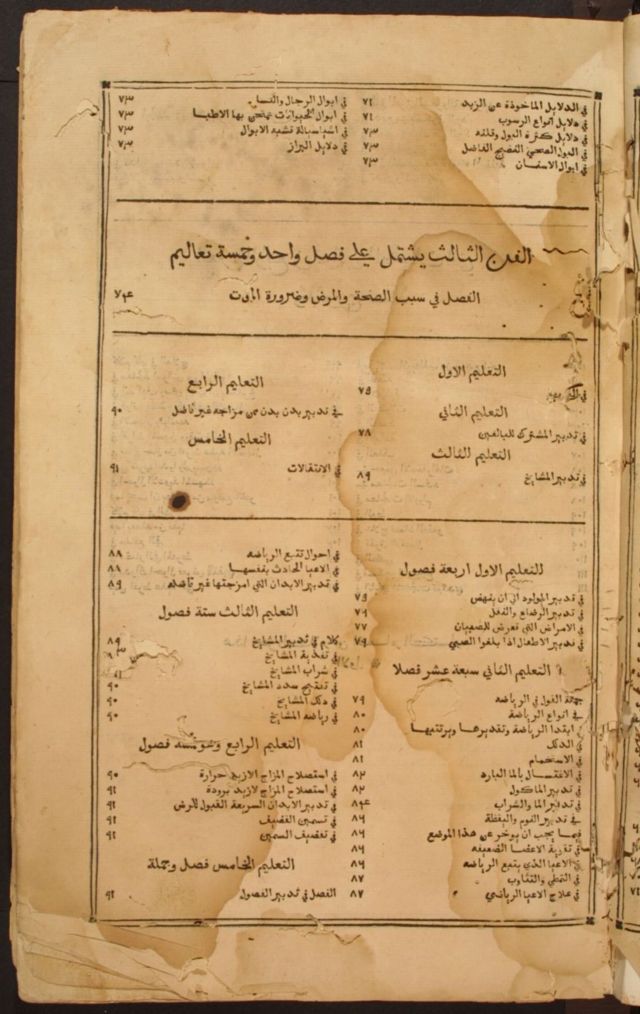 في الدلايل الماخوذة عن الزبد ٧١
في دلايل انواع الرسوب ٧١
في دلايل كثرة البول وقلته ٧٣
في البول الصحي النضيج الفاضل ٧٣
في ابوال الاسنان ٧٣
في ابوال الرجال والنساء ٧٣
في ابوال الحيوانات يمتحن بها الاطبا ٧٣
في اشيا سيالة تشبه الابوال ٧٣
في دلايل البراز ٧٣
الفن الثالث يشتمل على فصل واحد وخمسة تعاليم
الفصل في سبب الصحة والمرض وضرورة الموت ٧٤
التعليم الاول
في ٧٩
التعليم الثاني
في تدبير المشترك للبالغين ٧٨
التعليم الثالث
في تدبير المشايخ ٨٩
التعليم الرابع
في تدبير بدن بدن من مزاجه غير فاضل ٩٠
التعليم الخامس
في الانتقالات ٩١
للتعليم الاول اربعة فصول
في تدبير المولود الى ان ينهض ٧٩
في تدبير الرضاع والنقل ٧٩
في الامراض التي تعرض للصبيان ٧٧
في تدبير الاطفال اذا بلغوا الصبي ٧٩
التعليم الثاني سبعة عشر فصلا
جملة القول في الرياضه ٧٩
في انواع الرياضة ٨٠
في ابتدا الرياضة وتقديرها وبرتتبها ٨٠
في الدلك ٨١
في الاستحمام ٨١
في الاغتسال بالما البارد ٨٢
في تدبير الماكول ٨٢
في تدبير الما والشراب ٨٤
في تدبير النوم واليقظة ٨٦
فيما يجب ان يوخر عن هذا الموضع ٨٦
في تقوية الاعضا الضعيفه ٨٦
في الاعيا الذي يتبع الرياضه ٨٦
في التمطي والتثاوب ٨٧
في علاج الاعيا الرياضي ٨٧
في احوال تتبع الرياضه ٨٨
في الاعيا الحادث بنفسها ٨٨
في تدبير الابدان التي امزجتها غير فاضله ٨٩
التعليم الثالث ستة فصول
كلام في تدبير المشايخ ٨٩
في تغذية المشايخ
في شراب المشايخ
في تفتيح سدد المشايخ ٩٠
في دلك المشايخ ٩٠
في رياضة المشايخ ٩٠
التعليم الرابع وخمسة فصول
في استصلاح المزاج الازيد حرارة ٩٠
في استصلاح المزاج لازيد برودة ٩١
في تدبير الابدان السريعة القبول للرض ٩١
في تسمين القضيف ٩١
في تقضيف السمين ٩١
التعليم الخامس فصل وجملة
الفصل في تدبير الفصول ٩١